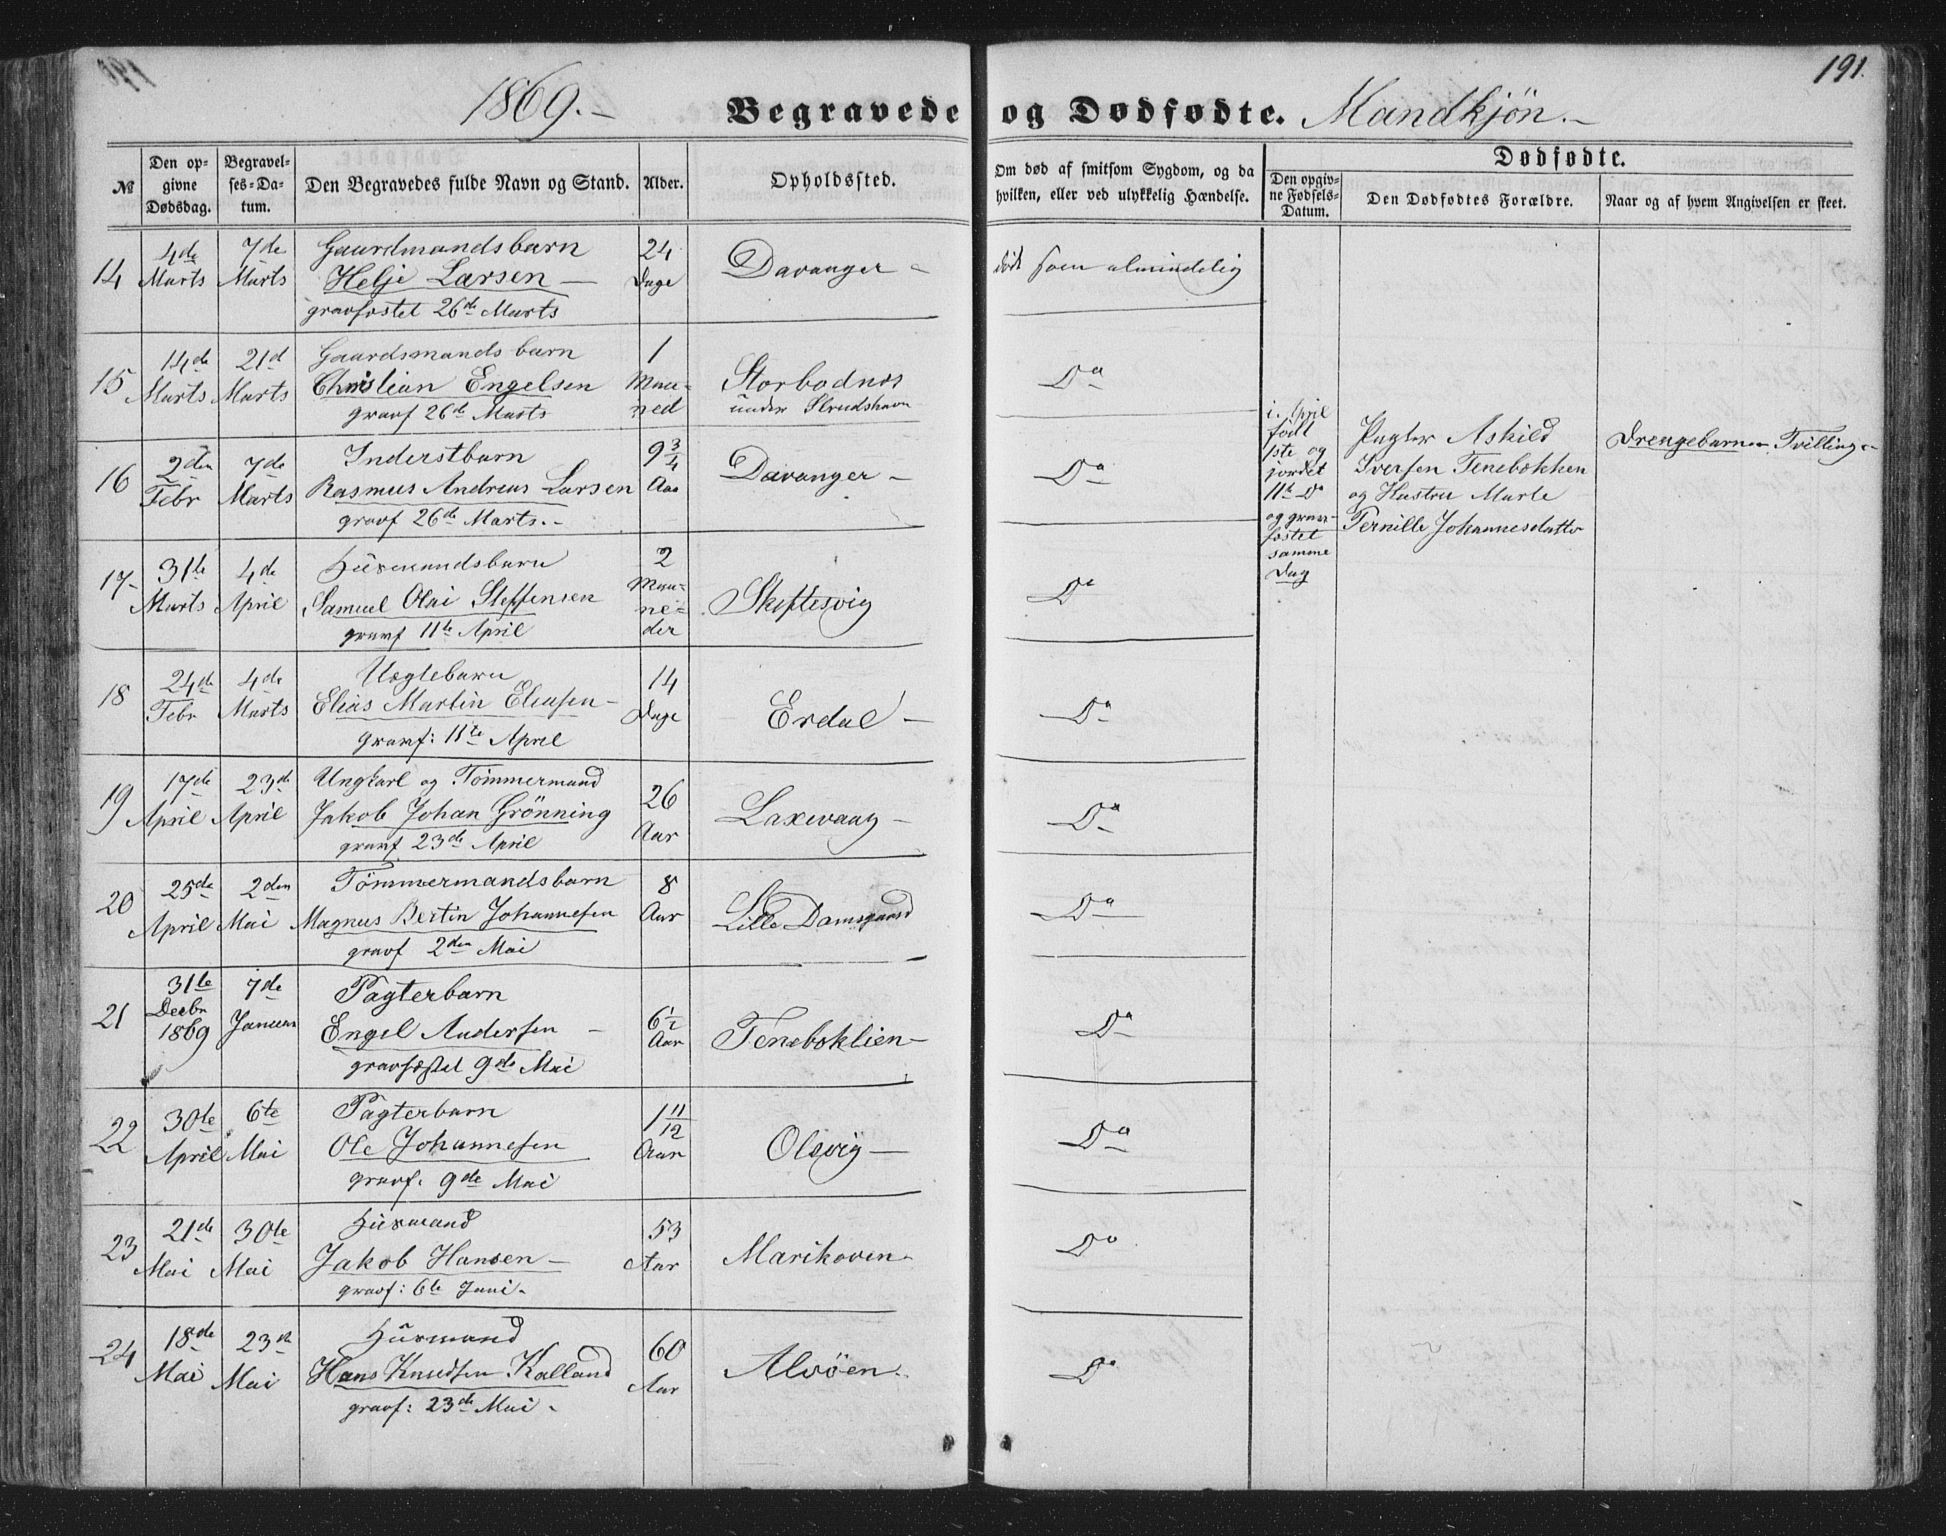 191.
1869.-
Begravede og Dødfødte. Mandkjøn.-
№
Den opgivne Dødsdag.
Begravelses-Datum.
Den Begravedes fulde Navn og Stand.
Alder.
Opholdssted.
Om død af smitsom Sygdom, og da hvilken, eller ved ulykkelig Hændelse.
Dødfødte.
Den opgivne Fødsels-Datum.
Den Dødfødtes Forældre.
Naar og af hvem Angivelsen er skeet.
14
4de Marts
7de Marts
Gaardmandsbarn
Helje Larsen -
gravfæstet 26de Marts
24 Dage
Davanger -
død som almindelig
15
14de Marts
21d Marts
Gaardsmandsbarn
Christian Engelsen
gravf 26de Marts
1 Maaned
Storbodnes
under Strudshavn
Do
16
2den Febr
7de Marts
Inderstbarn
Rasmus Andreas Larsen
gravf 26de Marts.-
9 3/4 Aar
Davanger -
Do
17-
31te Marts
4de April
Huusmandsbarn
Samuel Olai Steffensen
gravf 11te April
2 Maaneder
Skiftesvig
Do
18
24de Febr
4de Marts
Uægtebarn
Elias Martin Eliasen -
gravf: 11te April
14 Dage
Erdal -
Do
19
17de April
23de April
Ungkarl og Tømmermand
Jakob Johan Grönning
gravf 23de April
26 Aar
Laxevaag -
Do
20
25de April
2den Mai
Tömmermandsbarn
Magnus Bertin Johannesen
gravf 2den Mai
8 Aar
Lille Damsgaard
Do
21
31te Decbr 1869
7de Januar
Pagterbarn
Engel Andersen -
gravfæstet 9de Mai
6 1/2 Aar
Teneboklien -
Do
22
30te April
6te Mai
Pagterbarn
Ole Johannesen
gravf. 9de Mai
1 11/12 Aar
Olsvig -
Do
23
21de Mai
30te Mai
Huusmand
Jakob Hansen -
gravf: 6te Juni.
53 Aar
Marikoven -
Do
24
18de Mai
23de Mai
Huusmand
Hans Knudsen Kalland
gravf: 23de Mai -
60 Aar
Alvöen.
Do
i April
født
1ste og
jordet
11te Do
og gravfæstet
samme
Dag
Pagter Askild
Iversen Tenebekken
og Hustru Marte
Pernille Johannesdatter
Drengebarn en Tvilling -